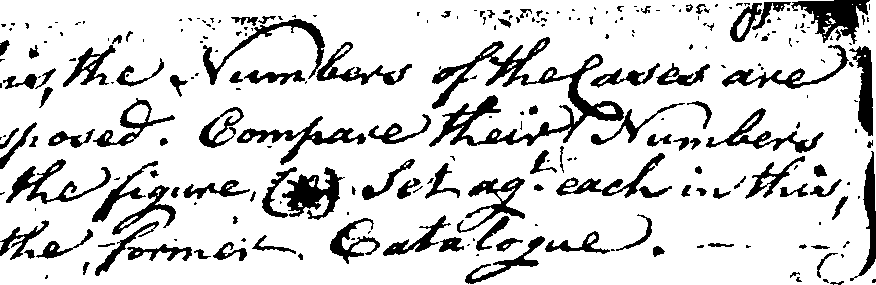 this, the Numbers of the Cases are
sposed. Compare their Numbers
the figure ( ) Set agt. each in this,
the former Catalogue. — —